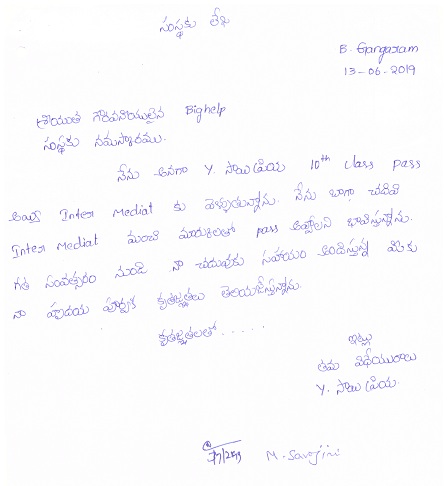 సంస్థకు లేఖ
B. Gangaram
13-06-2019
శ్రీయుత గౌరవనీయులైన Bighelp
సంస్థకు నమస్కారము.
నేను అనగా Y. సాయిప్రియ 10th class pass
అయ్యి Inter Mediat కు వెళ్ళుతున్నాను. నేను బాగా చదివి
Inter Mediat మంచి మార్కులతో pass అవ్వాలని భావిస్తున్నాను.
గత సంవత్సరం నుండి నా చదువుకు సహాయం అందిస్తున్న మీకు
నా హృదయ పూర్వక కృతజ్ఞతలు తెలియజేస్తున్నాను.
కృతజ్ఞతలతో . . . . .
ఇట్లు
తమ విధేయురాలు
Y. సాయి ప్రియ.
M. Sarojini